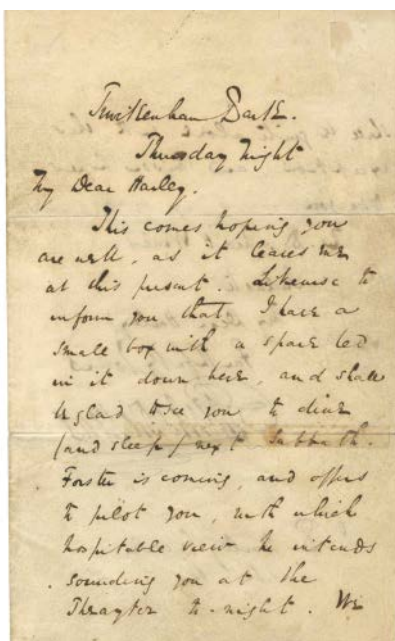 Twickenham Park.
Thursday Night
My Dear Harley.
This comes hoping you
are well, as it leaves me
at this present. Likewise to
inform you that I have a
small box with a spare bed
in it down here, and shall
be glad to see you to dine
(and sleep) next Sabbath.
Forster is coming, and offers
to pilot you, with which
hospitable view he intends
sounding you at the
Theayter to-night. We